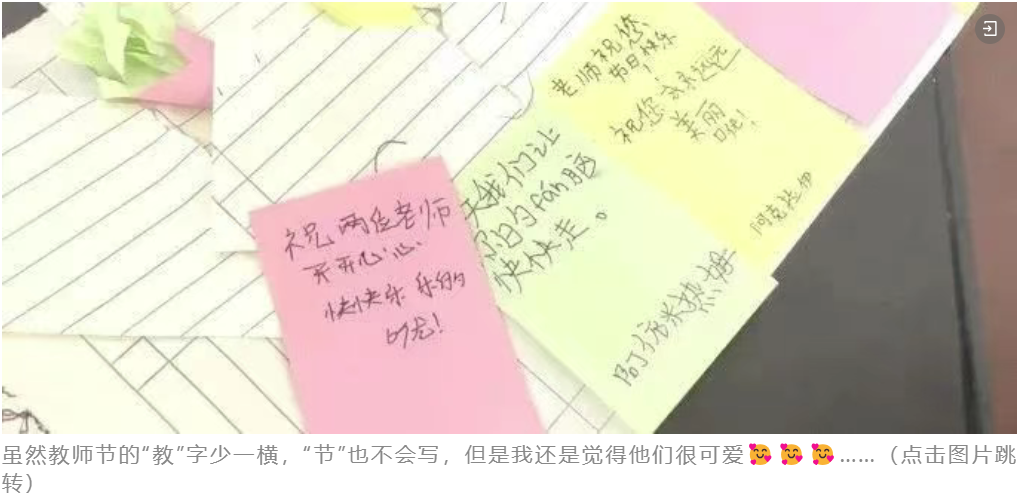 老师祝您
节日快乐
！
祝您永永远远
美丽
阿克拉伊
天我们让
fán脑
快快走。
祝两位老师
开开心心
快快乐乐的
虽然教师节的“教”字少一横，“节”也不会写，但是我还是觉得他们很可爱🥰🥰🥰……（点击图片跳
转）